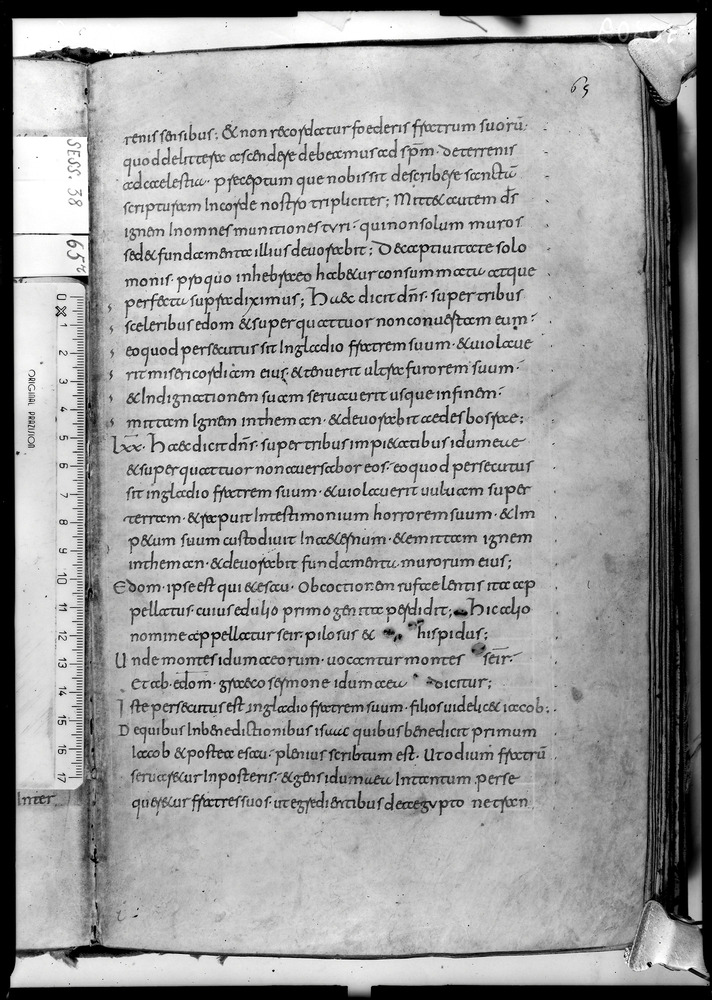 65
renis sensibus; & non recordatur foederis fratrum suorū·
quod de littera ascendere debeamus ad spm̄· de terrenis
ad caelestia· preceptum que nobis sit describere sanctū
scripturam In corde nostro tripliciter; Mittet autem ds̄
ignem In omnes munitiones tyri· qui non solum muros
sed & fundamenta illius devorabit; De captivitate solo
monis· pro quo in hebraeo hab&ur consummata atque
perfecta supra diximus; Haec dicit dn̄s· super tribus
sceleribus edom & super quattuor non convertam eum·
eo quod persecutus sit In gladio fratrem suum· & violave
rit misericordiam eius· & tenuerit ultra furorem suum·
& Indignationem suam servaverit usque in finem·
mittam Ignem in theman· & devorabit aedes bosrae;
lxx· Haec dicit dn̄s· super tribus impietatibus idumeae
& super quattuor non aversabor eos· eo quod persecutus
sit in gladio fratrem suum· & violaverit vulvam super
terram· & rapuit In testimonium horrorem suum· & Im
p&um suum custodivit In aeternum· & emittam ignem
in theman· & devorabit fundamenta murorum eius;
Edom· ipse est qui & esau· Ob coctionem rufae lentis ita ap
pellatus· cuius edulio primogenita perdidit; Hic alio
nomine appellatur seir· pilosus & hispidus;
Unde montes idumaeorum· vocantur montes seir·
Et ab edom· graeco sermone idumaea dicitur;
Iste persecutus est in gladio fratrem suum· filios videlic& iacob;
De quibus In benedictionibus isaac quibus benedicit primum
Iacob & postea esau· plenius scribtum est· Ut odium fratrū
servar&ur In posteris· & gens idumaea In tantum perse
quer&ur fratres suos· ut egredientibus de aegypto nec tran
Inter
SESS. 38
65r
0 1 2 3 4 5 6 7 8 9 10 11 12 13 14 15 16 17